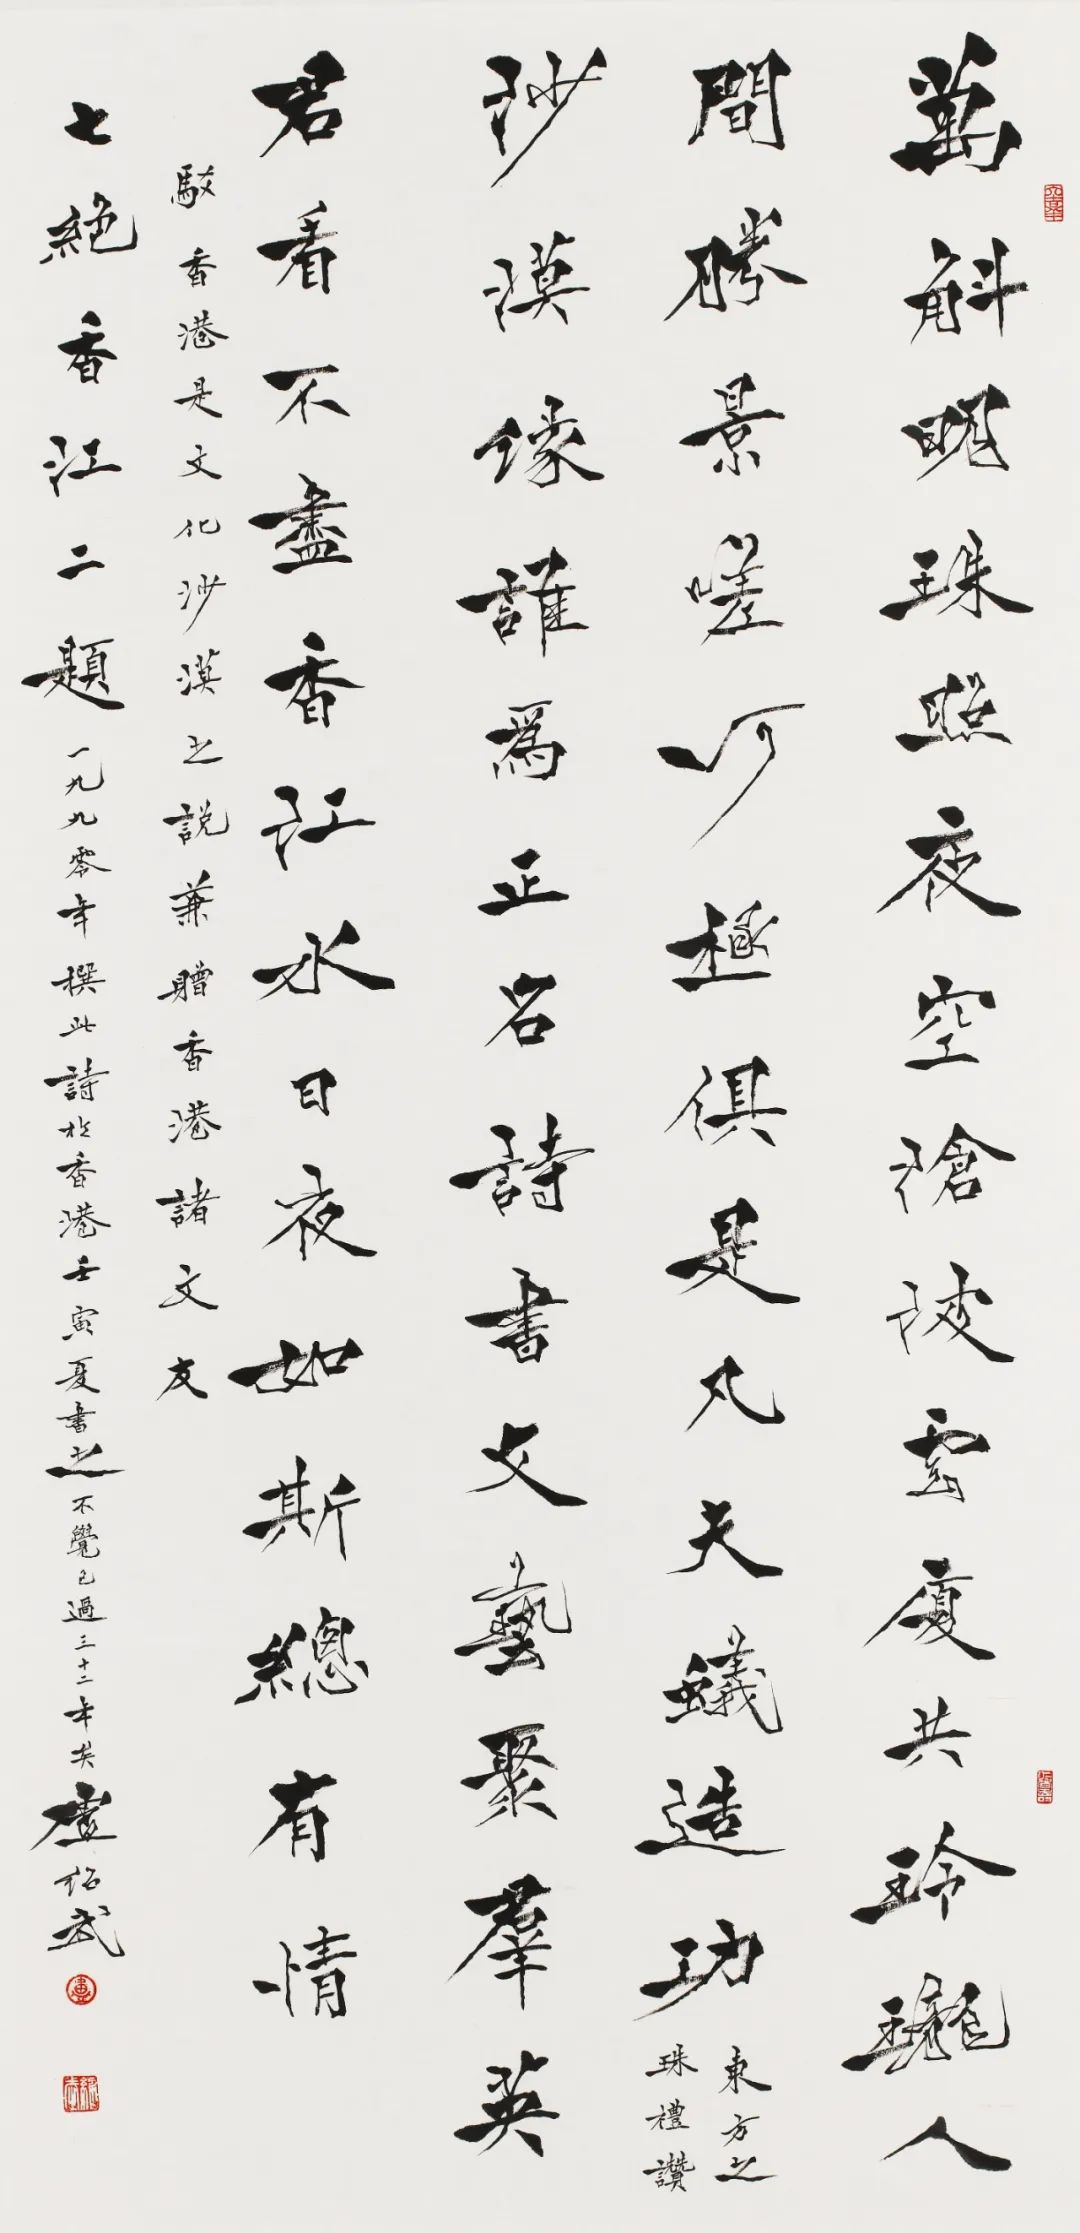 萬斛明珠照夜空滄波雲廈共玲瓏人
間勝景嗟何極俱是凡夫蟻造功
東方之
珠禮讚
沙漠誰爲正名詩書文藝聚羣英
君看不盡香江水日夜如斯總有情
駁香港是文化沙漠之說兼贈香港諸文友
七絕香江二題一九九零年撰此詩於香港壬寅夏書之不覺已過三十二年矣盧紹武